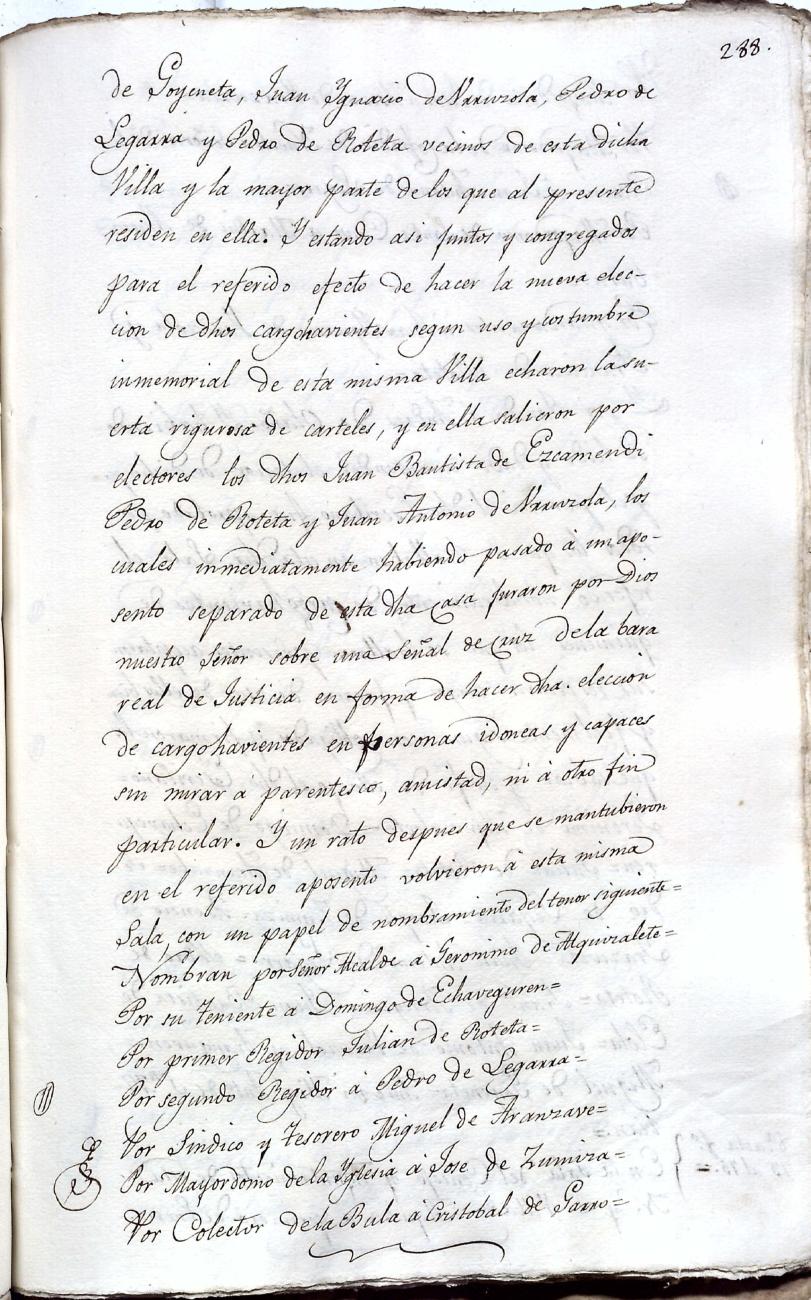 288.
de Goyeneta, Juan Ygnacio de Vrruzola, Pedro de
Legarra y Pedro de Roteta vecinos de esta dicha
Villa y la mayor parte de los que al presente
residen en ella. Y estando asi juntos y congregados
para el referido efecto de hacer la nueva elec-
cion de dhos cargohavientes segun uso y costumbre
inmemorial de esta misma Villa echaron la su-
erta rigurosa de carteles, y en ella salieron por
electores los dhos Juan Bautista de Ezcamendi
Pedro de Roteta y Juan Antonio de Vrruzola, los
cuales inmediatamente habiendo pasado à un apo-
sento separado de esta dha Casa juraron por Dios
nuestro Señor sobre una Señal de Cruz de la bara
real de Justicia en forma de hacer dha. eleccion
de cargohavientes en personas idoneas y capaces
sin mirar à parentesco, amistad, ni à otro fin
particular. Y un rato despues que se mantubieron
en el referido aposento volvieron à esta misma
Sala, con un papel de nombramiento del tenor siguiente=
Nombran por Señor Alcalde à Geronimo de Alquizalete=
Por su Teniente à Domingo de Echaveguren=
Por primer Regidor Julian de Roteta=
Por segundo Regidor à Pedro de Legarra=
Por Sindico y Tesorero Miguel de Aranzave=
Por Mayordomo de la Yglesia à Jose de Zumiza=
Por Colector de la Bula à Cristobal de Garro=